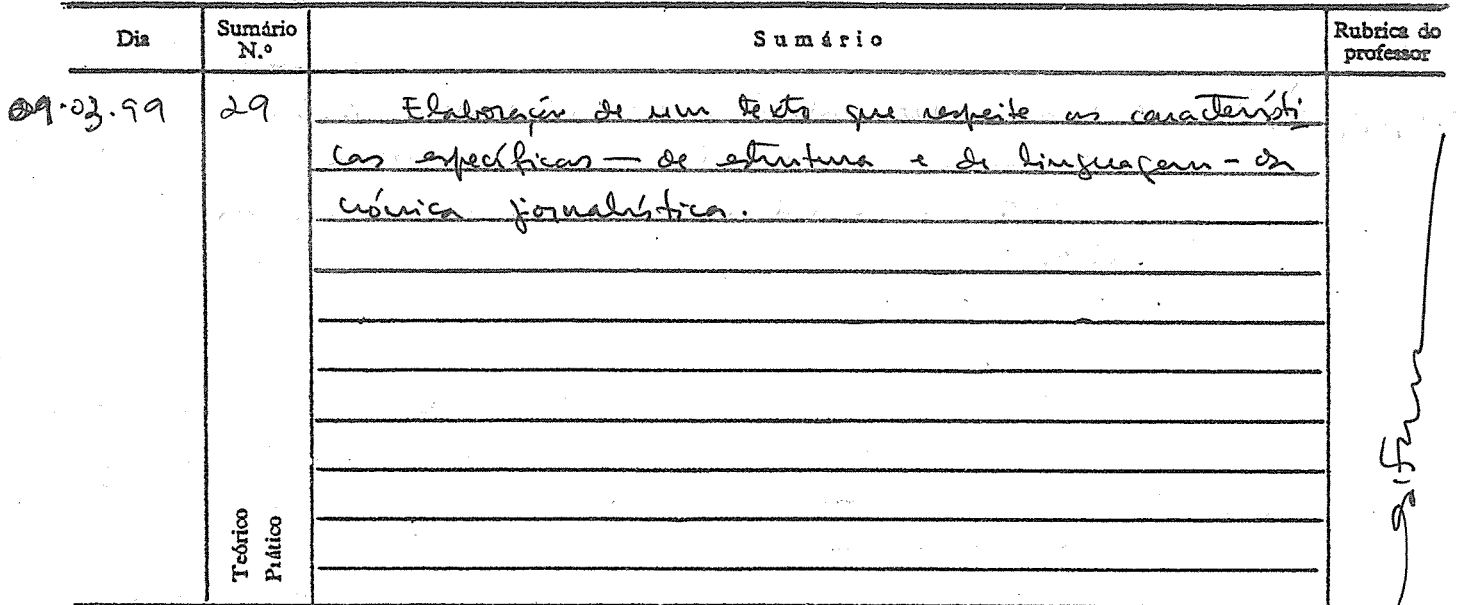 Dia Sumário N.º Sumário Rubrica do professor
09.03.99 29 Elaboração de um texto que respeite as característi
cas específicas — de estrutura e de linguagem - da
crónica jornalística.
Teórico
Prático